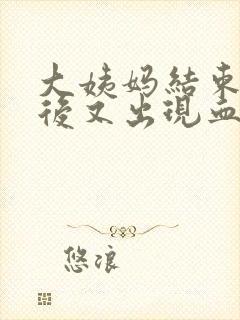 大姨妈結束
後又出現血
悠浪